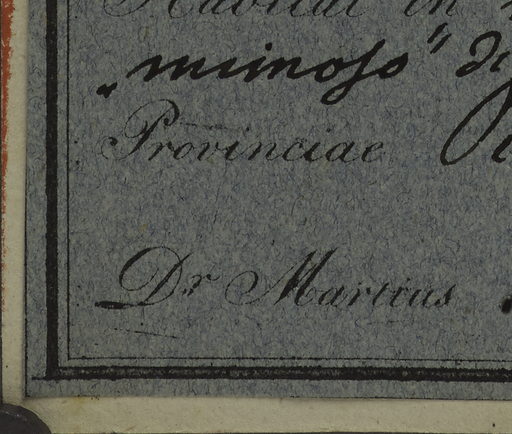 Habitat in
„mimoso“
Provinciae
Dr Martius